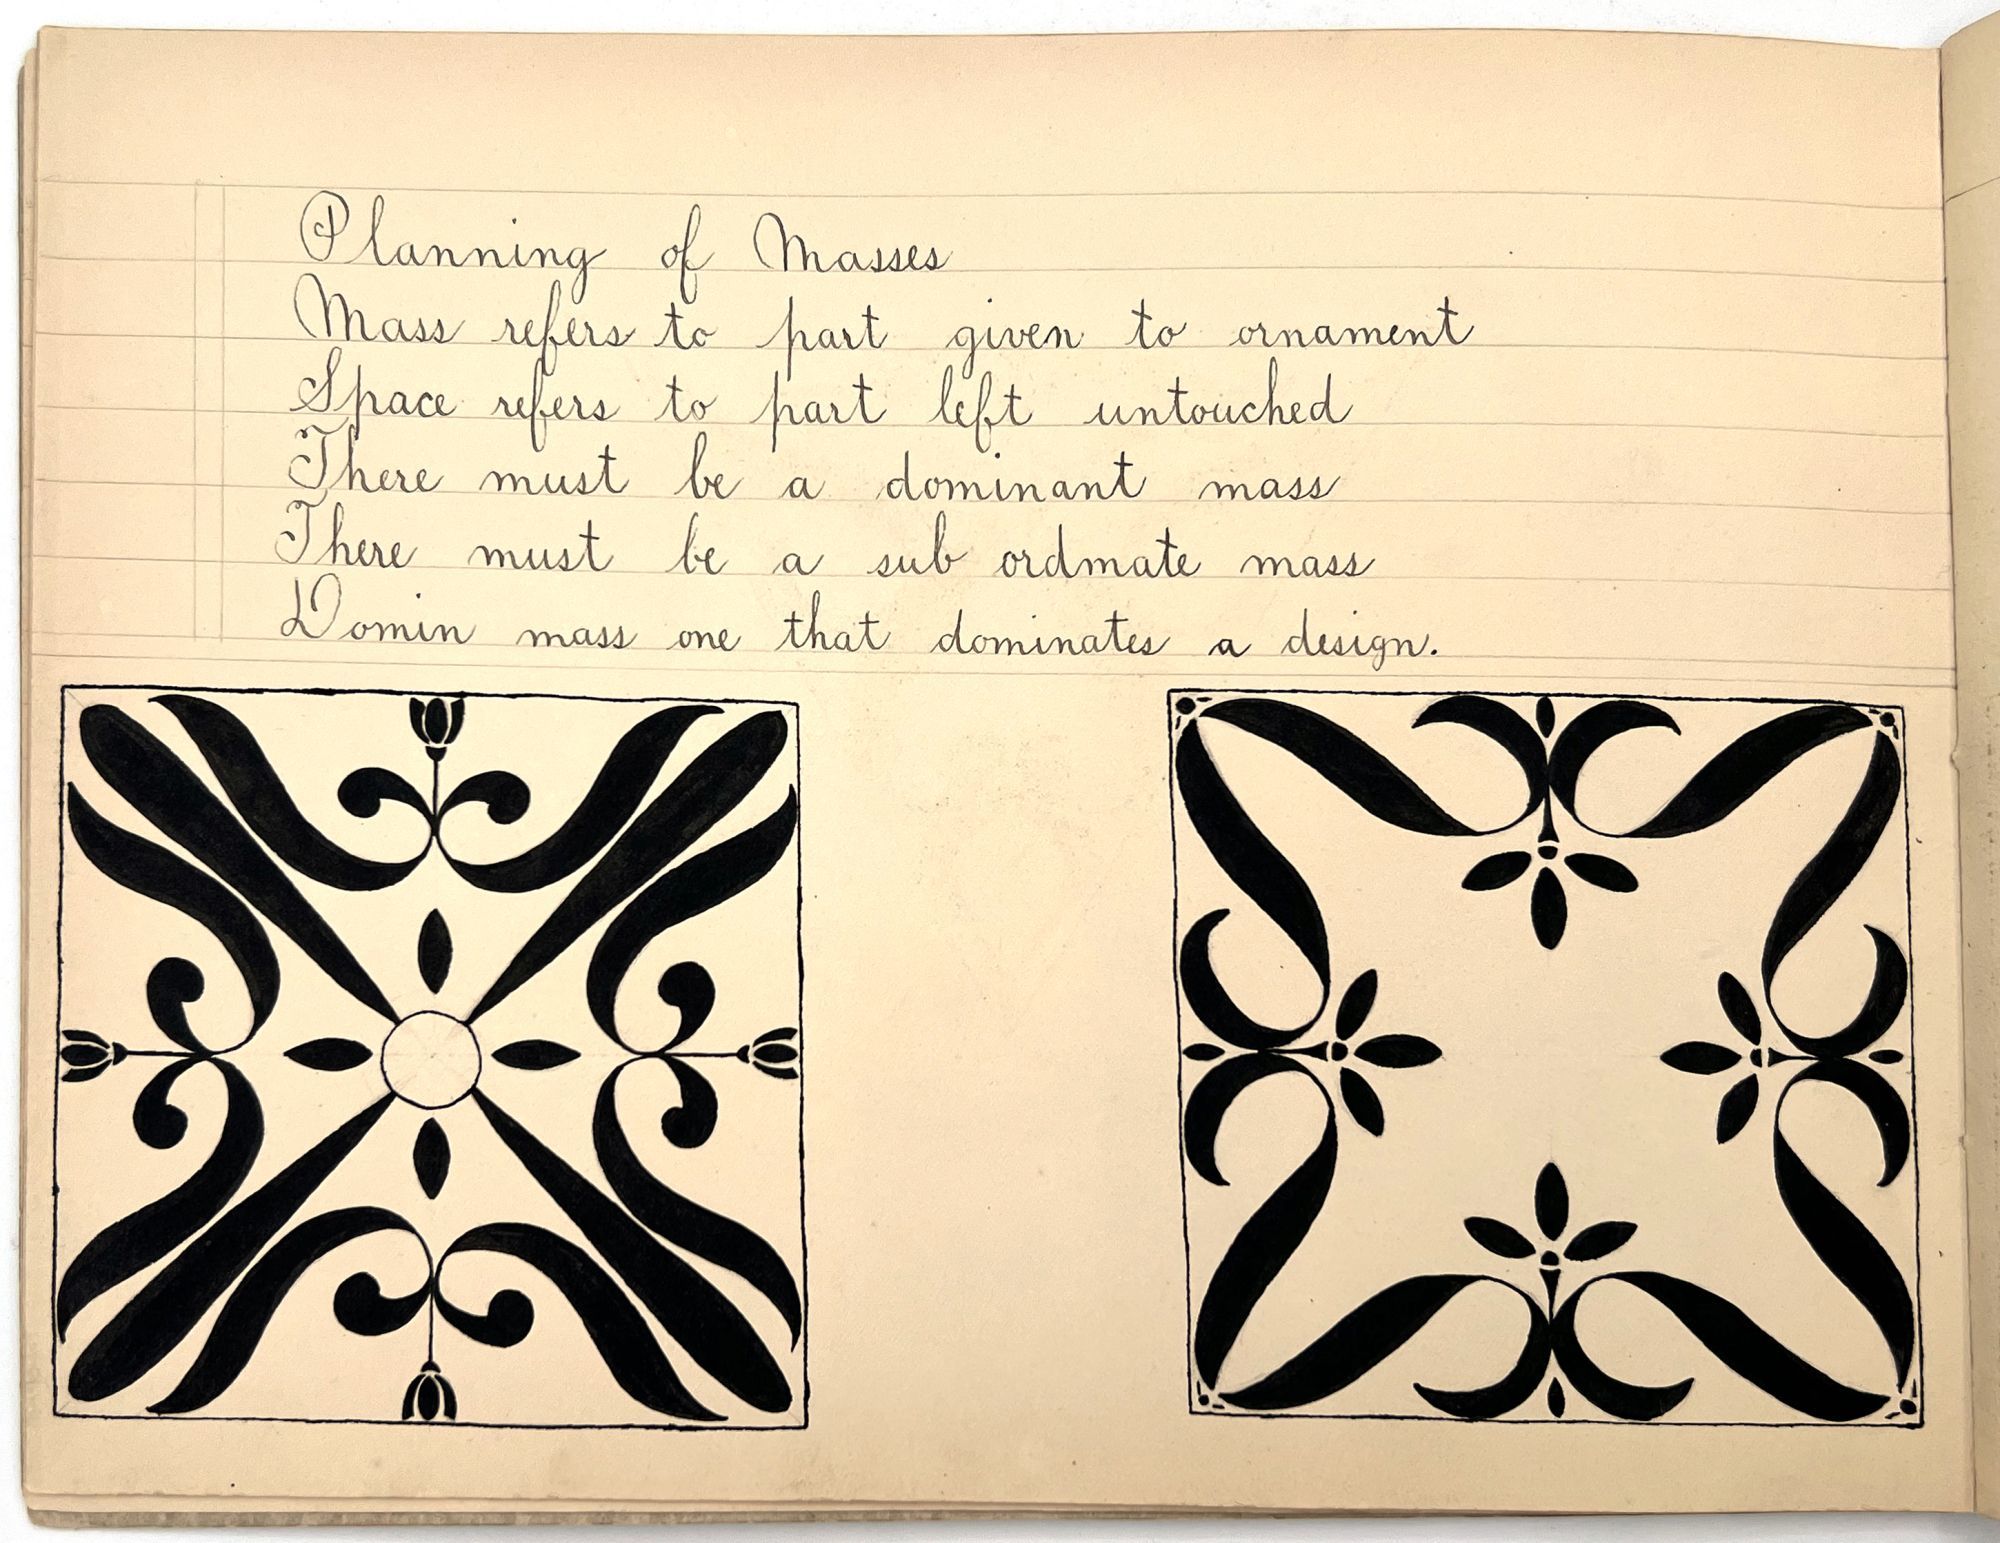 Planning of Masses
Mass refers to part given to ornament
Space refers to part left untouched
There must be a dominant mass
There must be a sub ordmate mass
Domin mass one that dominates a design.